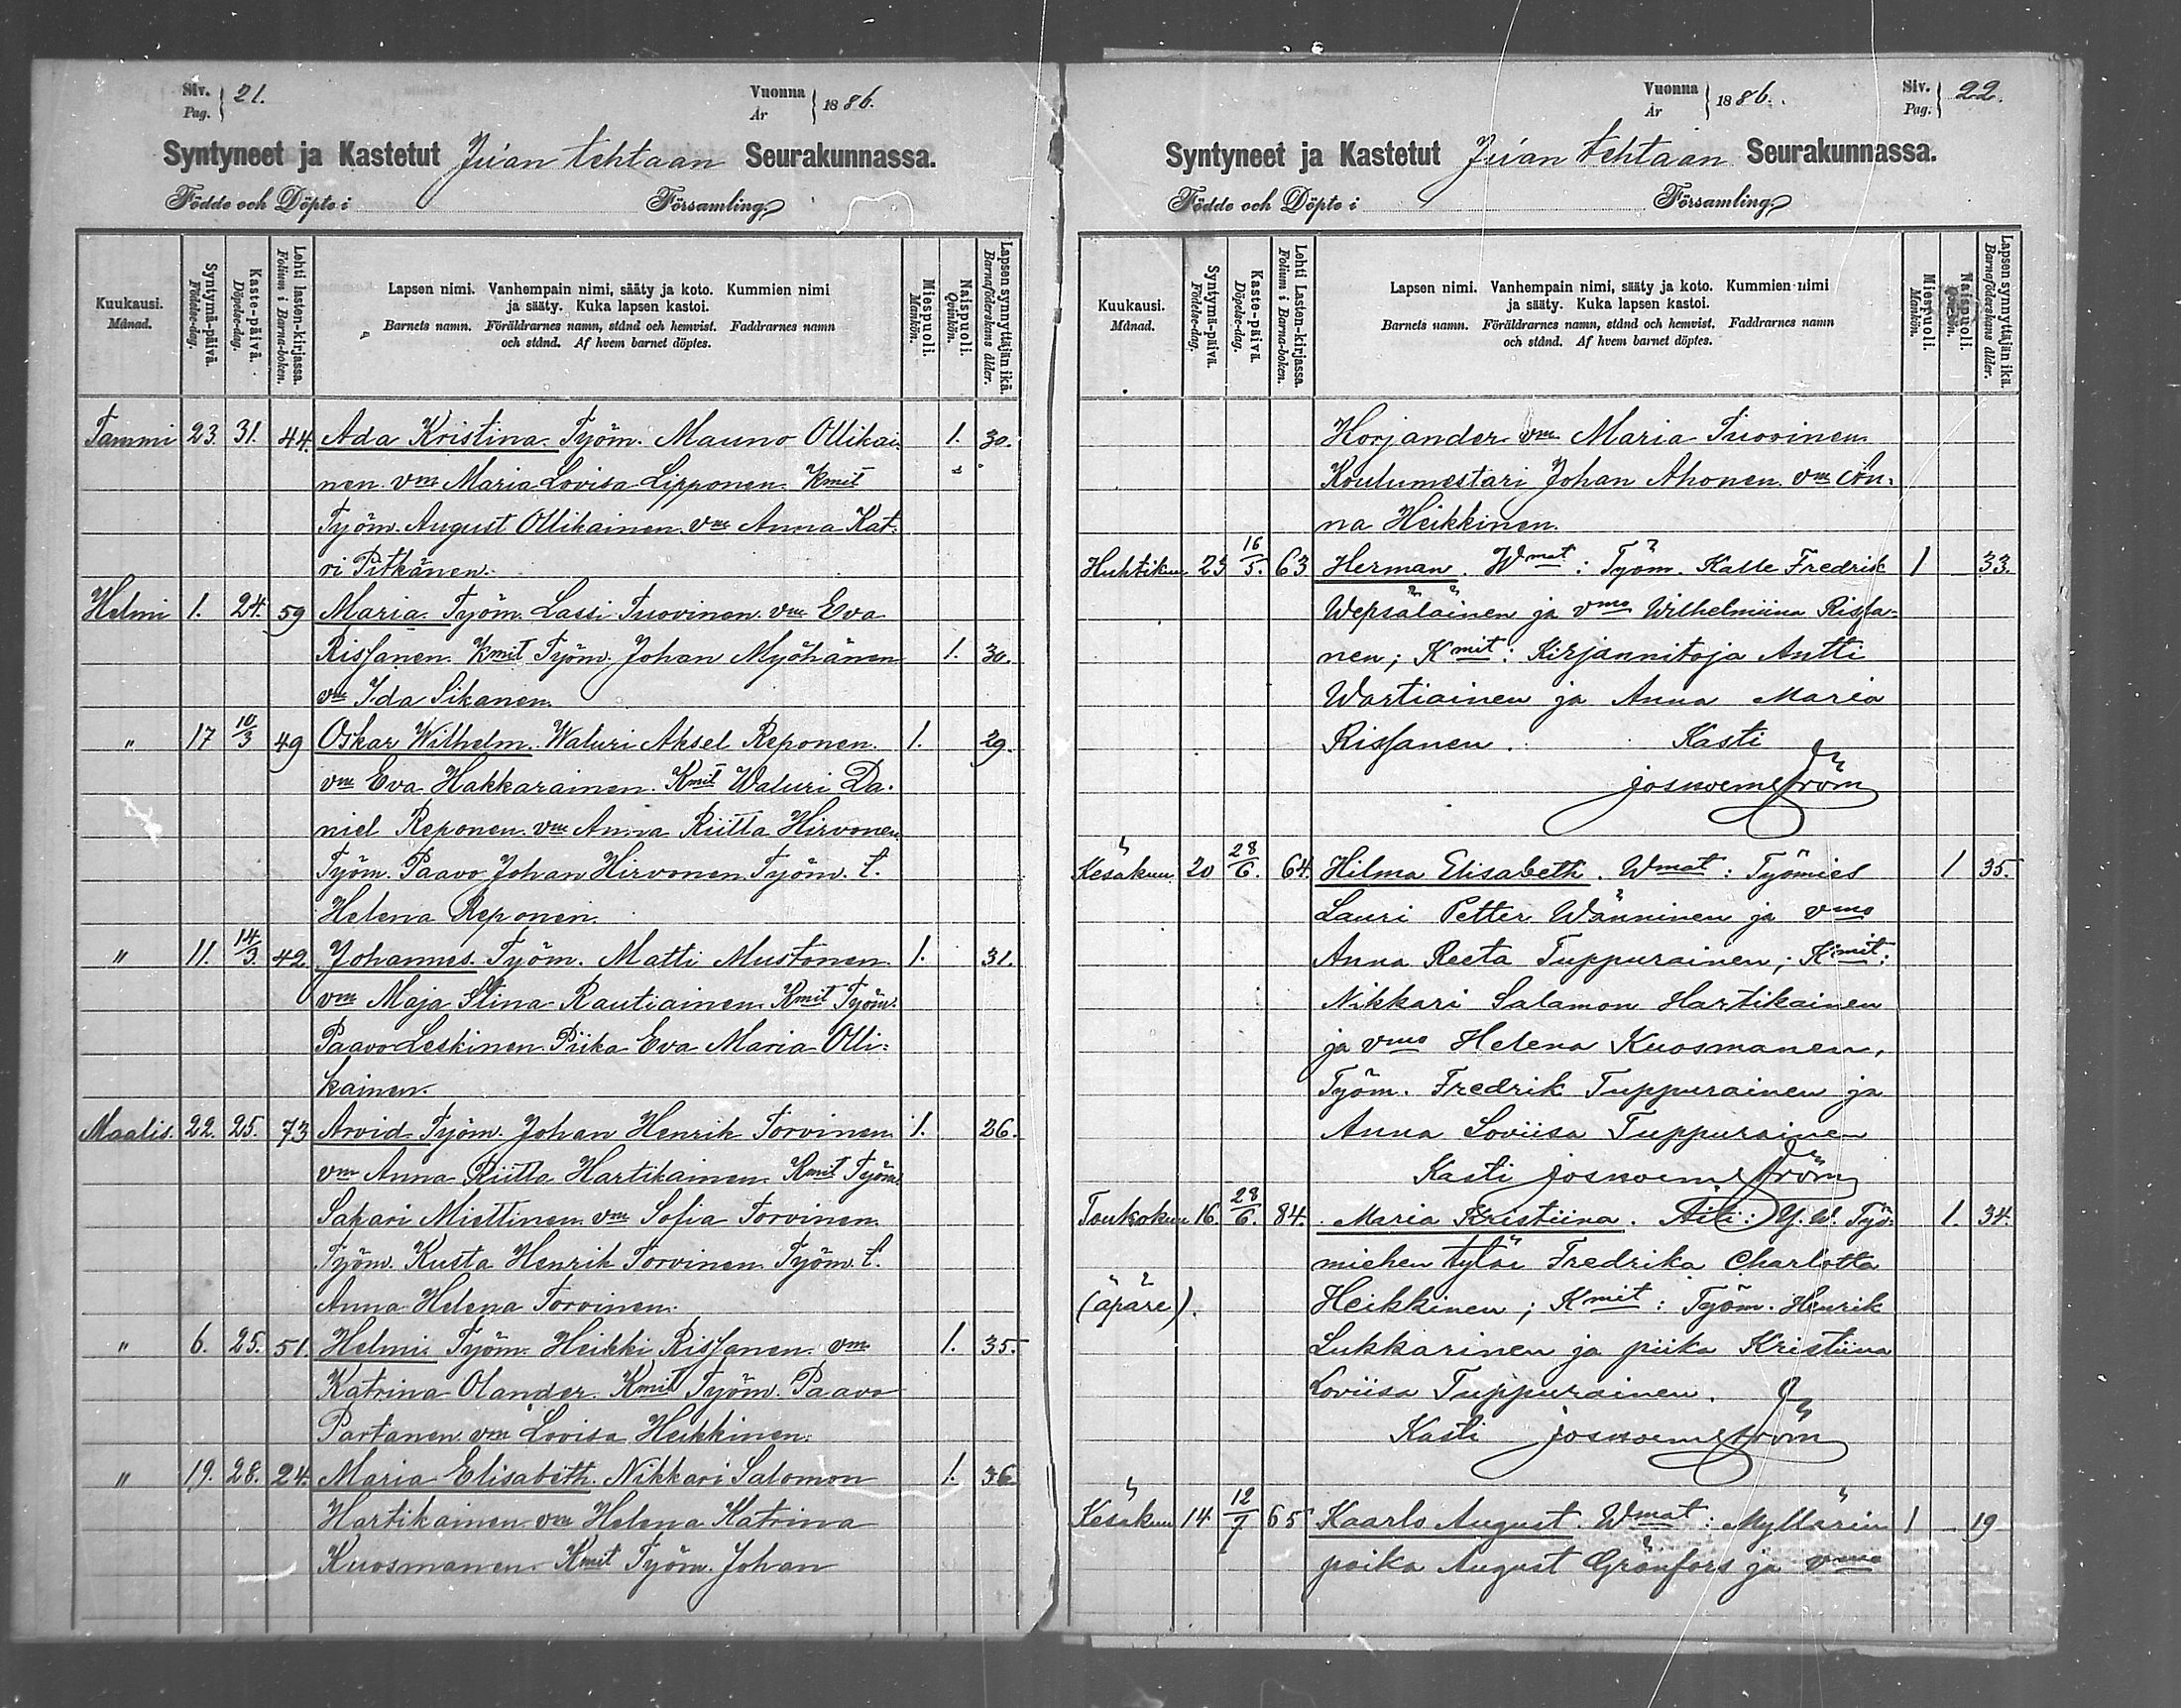 Siv. Pag. 21. Vuonna År 1886.
Syntyneet ja Kastetut Ju'an tehtaan Seurakunnassa.
Födde och Döpte i Församling
Kuukausi. Månad. Syntymä-päivä. Födelse-dag. Kaste-päivä. Döpelse-dag. Lehti lasten-kirjassa. Folium i Barna-boken.
Lapsen nimi. Vanhempain nimi, sääty ja koto. Kummien nimi
ja sääty. Kuka lapsen kastoi.
Barnets namn. Föräldrarnes namn, stånd och hemvist. Faddrarnes namn
och stånd. Af hvem barnet döptes.
Miespuoli. Mankön. Naispuoli. Qvinkön. Lapsen synnyttäjän ikä. Barnaföderskans ålder.
Tammi 23. 31. 44. Ada Kristina. Työm. Mauno Ollikai- 1. 30.
nen. vm Maria Lovisa Lipponen. Kmit
Työm. August Ollikainen. vm Anna Kat-
ri Pitkänen.
Helmi 1. 24. 59 Maria. Työm. Lassi Tuovinen. vm Eva
Rissanen. Kmit Työm. Johan Myöhänen 1. 30.
vm Ida Sikanen.
" 17 10/3 49 Oskar Wilhelm. Waluri Aksel Reponen. 1. 29.
vm Eva Hakkarainen. Kmit Waluri Da-
niel Reponen. vm Anna Riitta Hirvonen
Työm. Paavo Johan Hirvonen. Työm. t.
Helena Reponen.
" 11. 14/3. 42 Johannes. Työm. Matti Mustonen. 1. 31.
vm Maja Stina Rautiainen. Kmit Työm.
Paavo Leskinen. Piika Eva Maria Olli-
kainen.
Maalis. 22. 25. 73 Arvid. Työm. Johan Henrik Torvinen 1. 26.
vm Anna Riitta Hartikainen. Kmit Työm.
Sakari Miettinen. vm Sofia Torvinen.
Työm. Kusta Henrik Torvinen. Työm. t.
Anna Helena Torvinen.
" 6. 25. 51. Helmi. Työm. Heikki Rissanen. vm 1. 35.
Katrina Olander. Kmit Työm. Paavo
Partanen. vm Lovisa Heikkinen.
" 19. 28. 24. Maria Elisabeth. Nikkari Salomon 1. 36
Hartikainen. vm Helena Katrina
Kuosmanen. Kmit Työm. Johan
Vuonna År 1886. Siv. Pag. 22.
Syntyneet ja Kastetut Ju'an tehtaan Seurakunnassa.
Födde och Döpte i Församling
Kuukausi. Månad. Syntymä-päivä. Födelse-dag. Kaste-päivä. Döpelse-dag. Lehti Lasten-kirjassa. Folium i Barna-boken.
Lapsen nimi. Vanhempain nimi, sääty ja koto. Kummien nimi
ja sääty. Kuka lapsen kastoi.
Barnets namn. Föräldrarnes namn, stånd och hemvist. Faddrarnes namn
och stånd. Af hvem barnet döptes.
Miespuoli. Mankön. Naispuoli. Qvinkön. Lapsen synnyttäjän ikä. Barnaföderskans ålder.
Horjander vm Maria Tuovinen
Koulumestari Johan Ahonen. vm An-
na Heikkinen.
Huhtikuu 25 16/5. 63 Herman. Wmat: Työm. Kalle Fredrik 1 33.
Wepsäläinen ja vmo Wilhelmiina Rissa-
nen; Kmit: Kirjannitoja Antti
Wartiainen ja Anna Maria
Rissanen. Kasti
Kesäkuu 20 28/6. 64. Hilma Elisabeth. Wmat: Työmies 1 35.
Lauri Petter Wänninen ja vmo
Anna Reeta Tuppurainen; Kmit:
Nikkari Salamon Hartikainen
ja vmo Helena Kuosmanen,
Työm. Fredrik Tuppurainen ja
Anna Loviisa Tuppurainen
Kasti
Toukokuu 16. 28/6. 84. Maria Kristiina. Äiti: Y. W. Työ- 1. 34.
miehen tytär Fredrika Charlotta
(äpäre). Heikkinen; Kmit: Työm. Henrik
Lukkarinen ja piika Kristiina
Loviisa Tuppurainen.
Kasti
Kesäkuu 14 12/7 65 Kaarlo August. Wmat: Myllärin 1 19
poika August Grönfors ja vmo